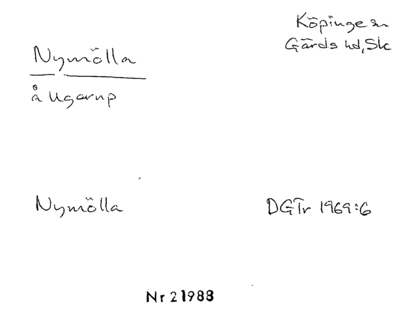 Köpinge sn
Gärds hd, Sk
Nymölla
å Ugerup
Nymölla
DGTr 1969:6
Nr 21988